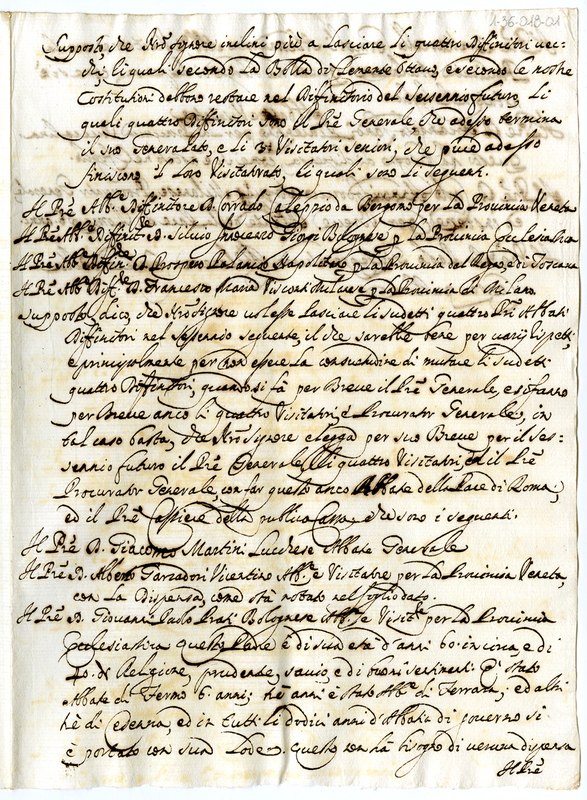 1-36-018-01
Supposto, che Nrõ Signore inclini più a lasciare li quattro Diffinitori vec-
chi, li quali secondo la Bolla di Clemente Ottavo, e secondo le nostre
Costitutioni debbono restare nel Diffinitorio del sessennio futuro, li
quali quattro Diffinitori sono il Prẽ Generale, che adesso termina
il suo Generalato, e li 3 Visitatori seniori, che pure adesso
finiscono il loro Visitatorato, li quali sono li seguenti.
Il Prẽ Abb.e Diffinitore D. Corrado Caleppio da Bergomo per la Provincia Veneta
Il Prẽ Abb.e Diffinit.e D. Silvio Innocenzo Giorgi Bolognese p la Provincia Ecclesiastica
Il Prẽ Abb.e Diffin.e D. Prospero Napolitano p la Provincia del Regno, e di Toscana
Il Prẽ Abb.e Diff.e D. Francesco Maria Visconti Milanese p la Provincia di Milano.
Supposto, dico, che Nrõ Signore volesse lasciare li sudetti quattro Prĩ Abbati
Diffinitori nel sessennio seguente, il che sarebbe bene per varij rispetti,
e principalmente per non essere la consuetudine di mutare li sudetti
quattro Diffinitori, quando si fà per Breve il Prẽ Generale, e si fanno
per Breve anco li quattro Visitatori, e Procurator Generale, in
tal caso basta, che Nrõ Signore elegga per suo Breve per il ses-
sennio futuro il Prẽ Generale, li quattro Visitatori, ed il Prẽ
Procurator Generale, con far questo anco Abbate della Pace di Roma,
ed il Prẽ Cassiere della publica Cassa, che sono i seguenti.
Il Prẽ D. Giacomo Martini Lucchese Abbate Generale
Il Prẽ D. Alberto Garzadori Vicentino Abb.e e Visitatore per la Provincia Veneta,
con la Dispensa, come stà notato nel foglio dato.
Il Prẽ D. Giovanni Paolo Prati Bolognese Abb.e e Visit.e per la Provincia
Ecclesiastica questo Padre è di sua età d'anni 60 in circa, e di
40 di Religione, prudente, savio, e di buoni sentimenti. È stato
Abbate di Fermo 6 anni; trè anni è stato Abb.e di Ferrara, ed altri
trè di Cesena, ed in tutti li dodici anni d'Abbatia di governo si
è portato con sua lode. questo non hà bisogno di veruna dispensa
Il Prẽ